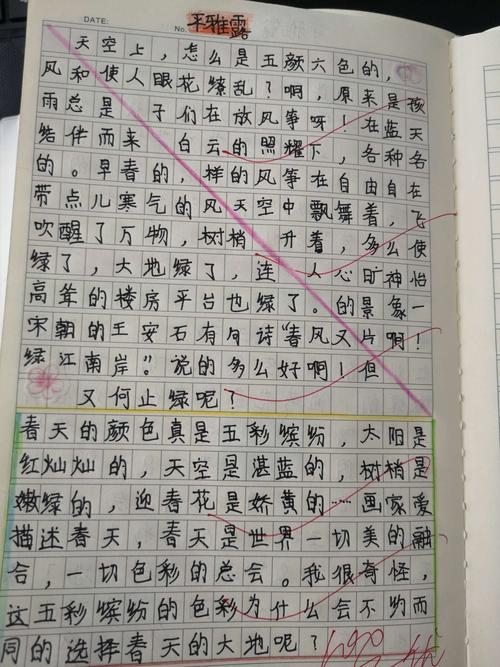 DATE:
No.
平雅露
天空上，怎么是五颜六色的，
风和使人眼花缭乱？啊，原来是孩
雨总是 子们在放风筝呀！在蓝天
结伴而来 白云的照耀下，各种各
的。早春的，样的风筝在自由自在
带点儿寒气的风天空中飘舞着，飞
吹醒了万物，树梢 升着，多么使
绿了，大地绿了，连 人心旷神怡
高耸的楼房平台也绿了。的景象一
宋朝的王安石有句诗“春风又片啊！
绿江南岸。”说的多么好啊！但
又何止绿呢？
春天的颜色真是五彩缤纷，太阳是
红灿灿的，天空是湛蓝的，树梢是
嫩绿的，迎春花是娇黄的……画家爱
描述春天，春天是世界一切美的融
合，一切色彩的总会。我很奇怪，
这五彩缤纷的色彩为什么会不约而
同的选择春天的大地呢？